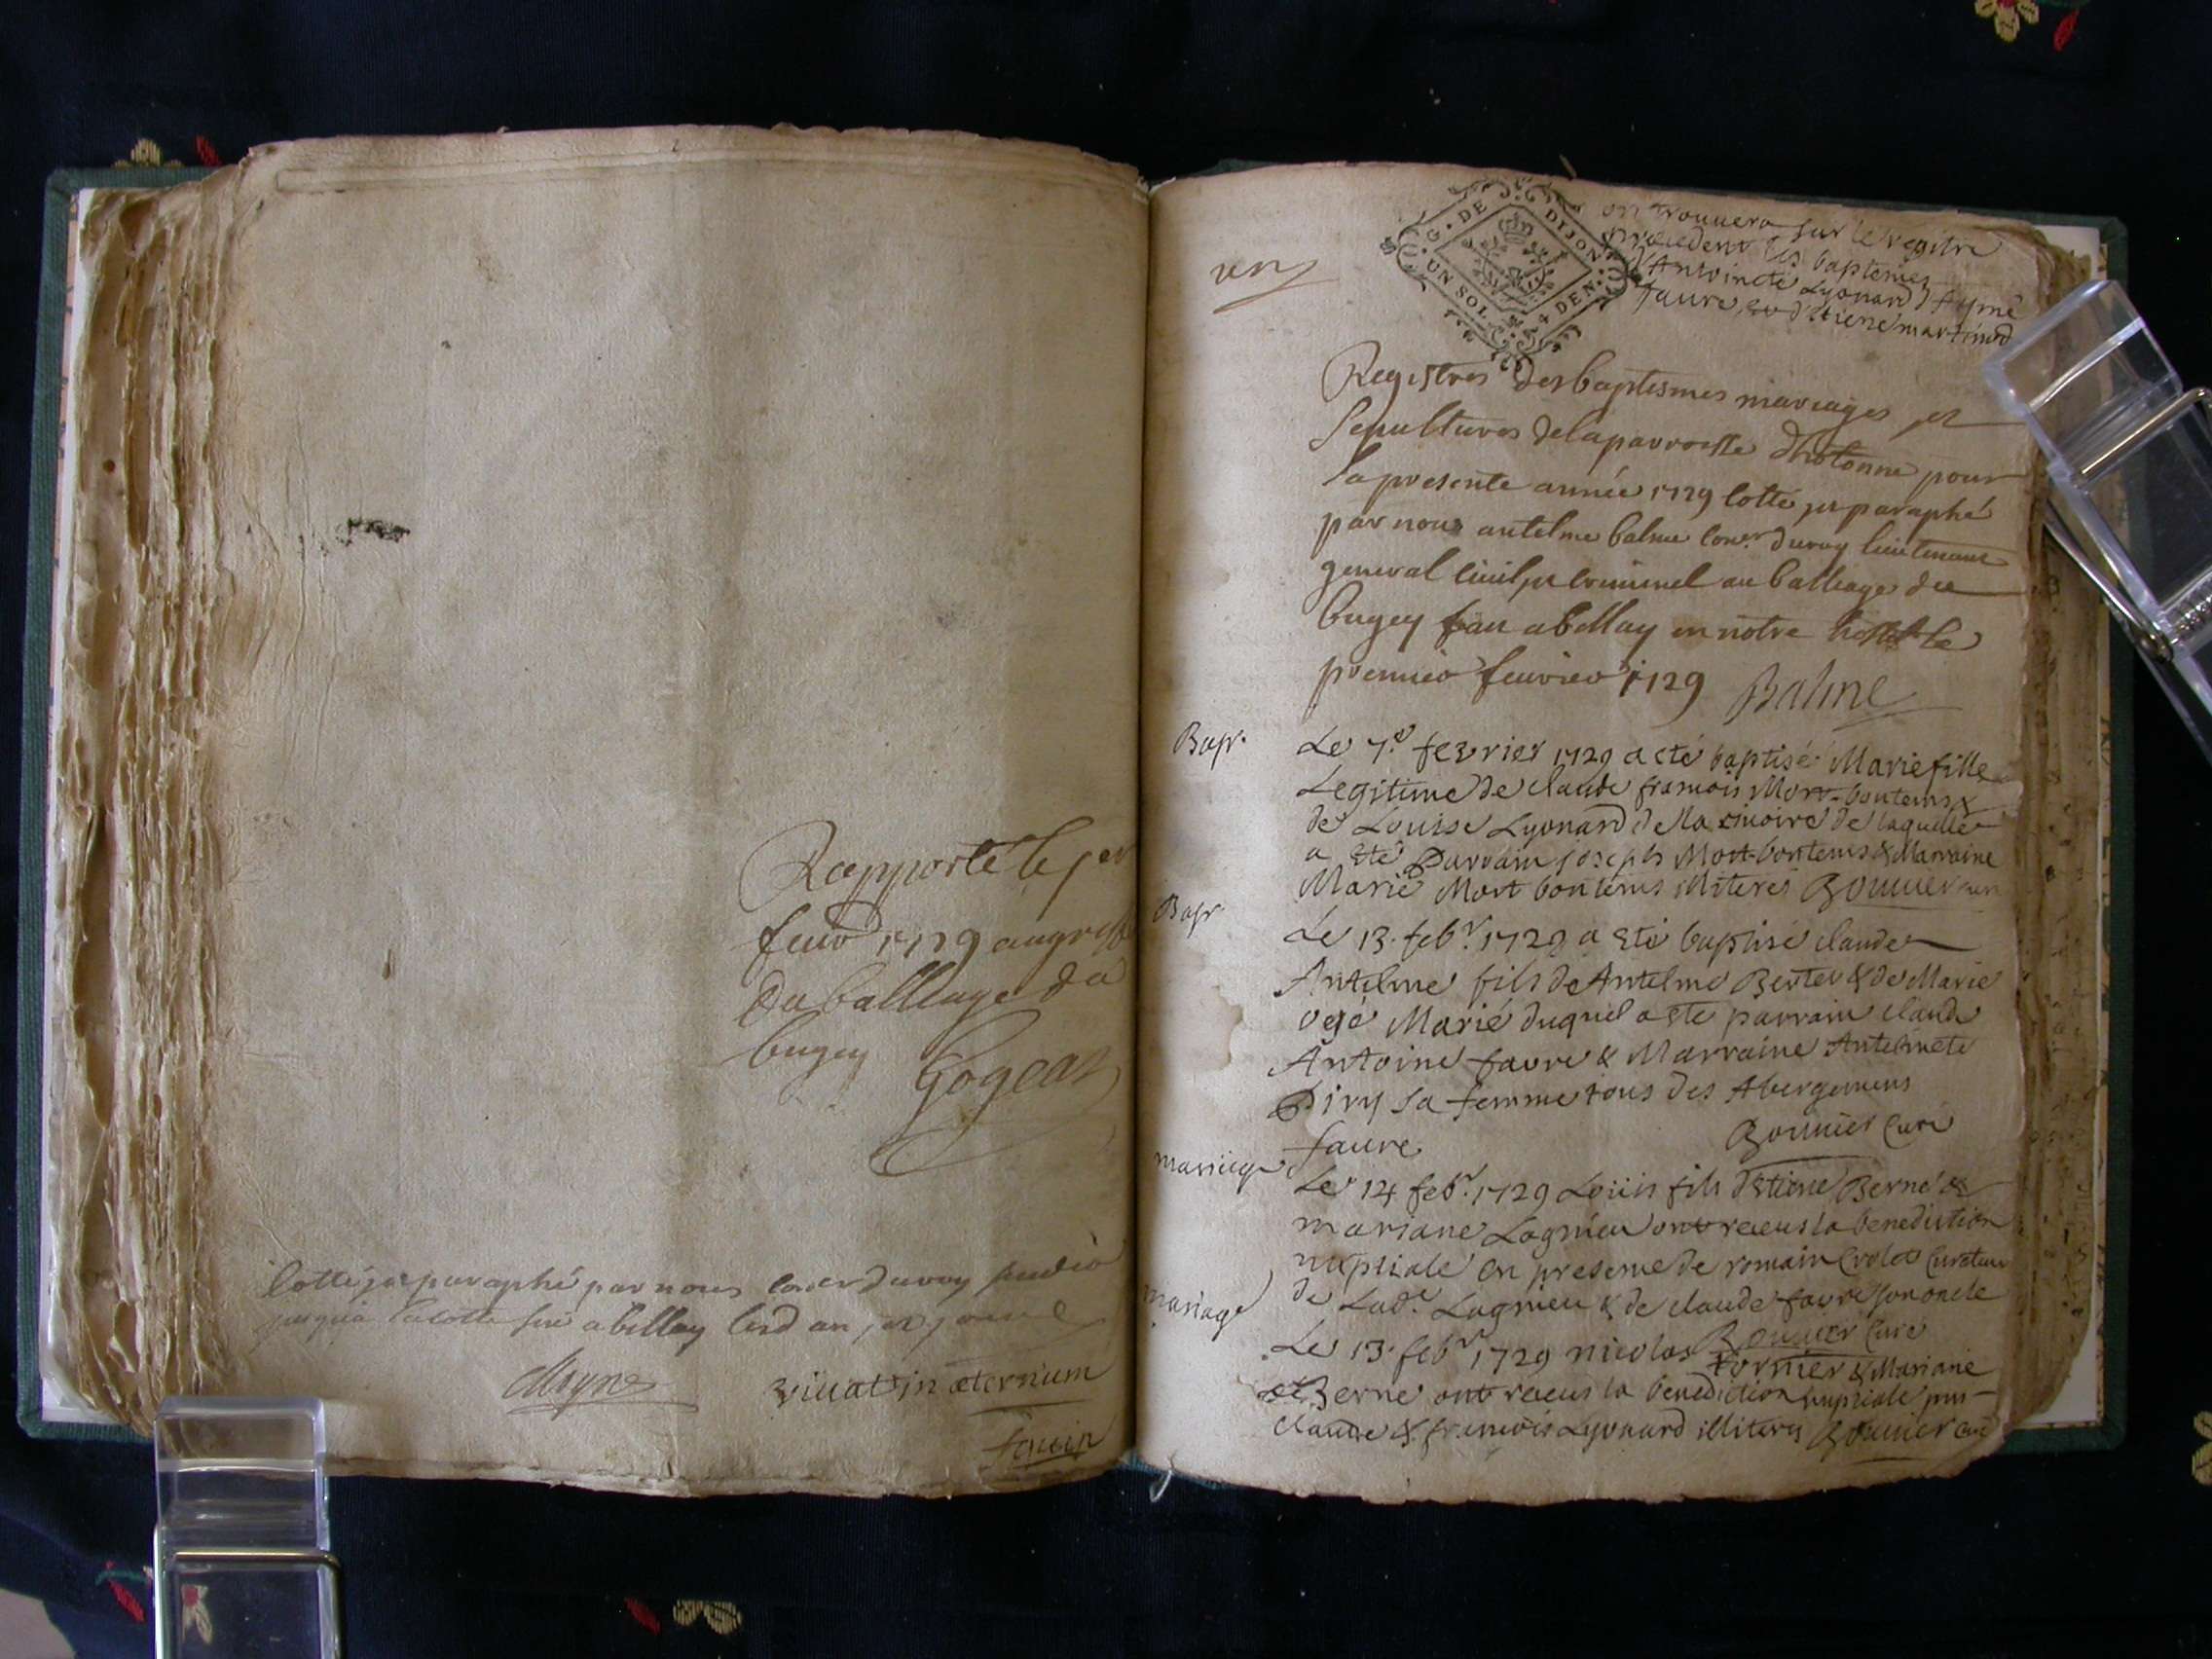 Rapporté le per
feuv 1729 au greffe
du balliage du
bugey Gogeat
Cotté et paraphé par nous du roy
jusqu'a la cotte a bellay an et jour
vivat in æternum
un
G. DE DIJON
UN SOL 4 DEN.
on trouuera sur le regitre
precedent les baptemes
d'Antoinete Lyonard d'Aymé
faure, et d'Etiene martinod
Registres des baptesmes mariages et
sepultures de la parroisse d'hotonne pour
la presente année 1729 cotté et paraphé
par nous antelme balme coner du roy lieutenant
general ciuil et criminel au balliage du
bugey fait a bellay en notre hostel le
premier feuvrier 1729 Balme
Bapt.
Le 7e fevrier 1729 a eté baptisé Marie fille
Legitime de claude francois Mort-bontems &
de Louise Lyonard de la de laquelle
a eté Parrain joseph Mort-bontems & Marraine
Marie Mort bontems illiteres Bouuier curé
Bapt.
Le 13. febr. 1729 a eté baptisé claude
Antelme fils de Antelme Berter & de Marie
Marié duquel a eté parrain claude
Antoine favre & Marraine Antelmete
Piry sa femme tous des Abergemens
faure Bouuier Curé
mariage
Le 14 febr. 1729 Loüis fils d'Etiene Berne &
mariane Lagnieu ont receus la benediction
nuptiale en presence de romain Curateur
de Lade. Lagnieu & de claude favre son oncle
Bouuier Curé
mariage
Le 13. febr. 1729 nicolas Fornier & Mariane
Berne ont receus la benediction nuptiale pnt
claude & francois Lyonard illiterés Bouuier Curé